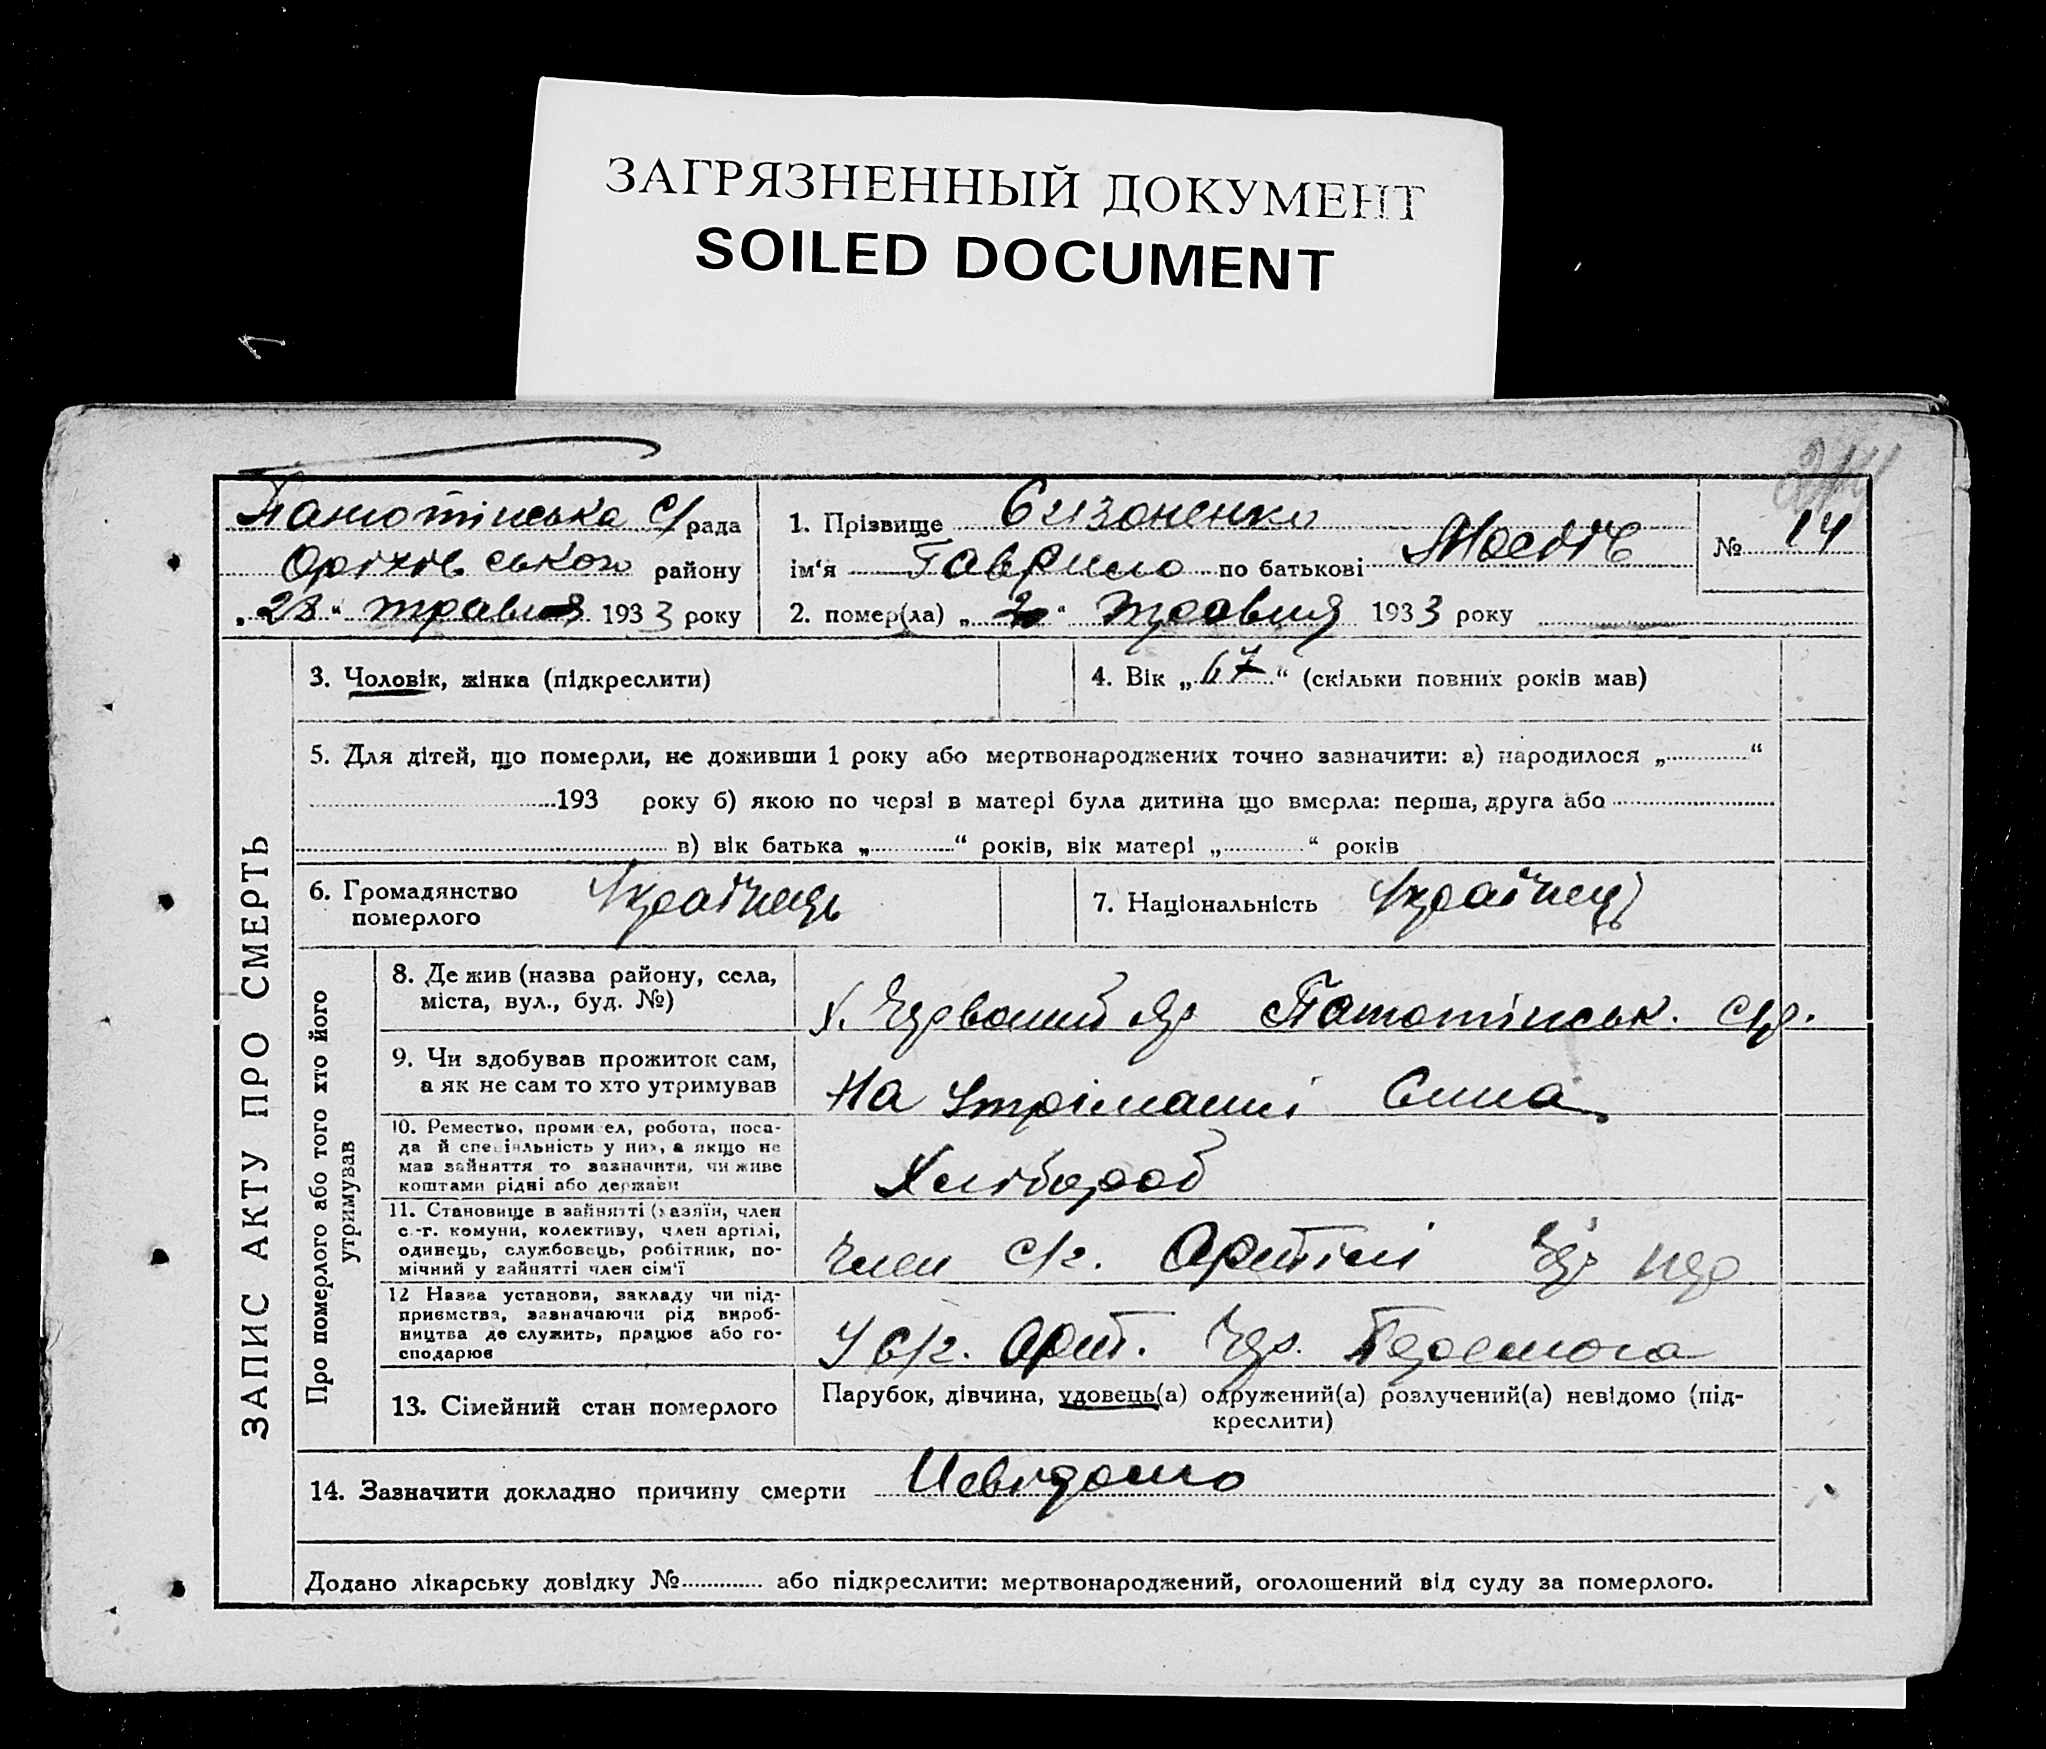 ЗАГРЯЗНЕННЫЙ ДОКУМЕНТ
SOILED DOCUMENT
ЗАПИС АКТУ ПРО СМЕРТЬ
Панютінська с/рада
Оріхівського району
„28“ травня 1933 року
1. Прізвище Сизоненко
ім'я Гаврило по батькові
№ 14
2. помер(ла) „ “ травня 1933 року
3. Чоловік, жінка (підкреслити)
4. Вік „67“ (скільки повних років мав)
5. Для дітей, що померли, не доживши 1 року або мертвонароджених точно зазначити: а) народилося „ “
193 року б) якою по черзі в матері була дитина що вмерла: перша, друга або
в) вік батька „ “ років, вік матері „ “ років
6. Громадянство
померлого
Українець
7. Національність Українець
Про померлого або того хто його
утримував
8. Де жив (назва району, села,
міста, вул., буд. №)
х. Червоний Яр Панютінськ. с/р.
9. Чи здобував прожиток сам,
а як не сам то хто утримував
На утріманні Сина
10. Ремество, промисел, робота, поса-
да й спеціяльність у них, а якщо не
мав зайняття то зазначити, чи живе
коштами рідні або держави
Хлібороб
11. Становище в зайнятті (хазяїн, член
с.-г. комуни, колективу, член артілі,
одинець, службовець, робітник, по-
мічний у зайнятті член сім'ї
Член с/г. Артілі
12 Назва установи, закладу чи під-
приємства, зазначаючи рід вироб-
ництва де служить, працює або го-
сподарює
У с/г. Арт. Чер. Перемога
13. Сімейний стан померлого
Парубок, дівчина, удовець(а) одружений(а) розлучений(а) невідомо (під-
креслити)
14. Зазначити докладно причину смерти Невідомо
Додано лікарську довідку № або підкреслити: мертвонароджений, оголошений від суду за померлого.